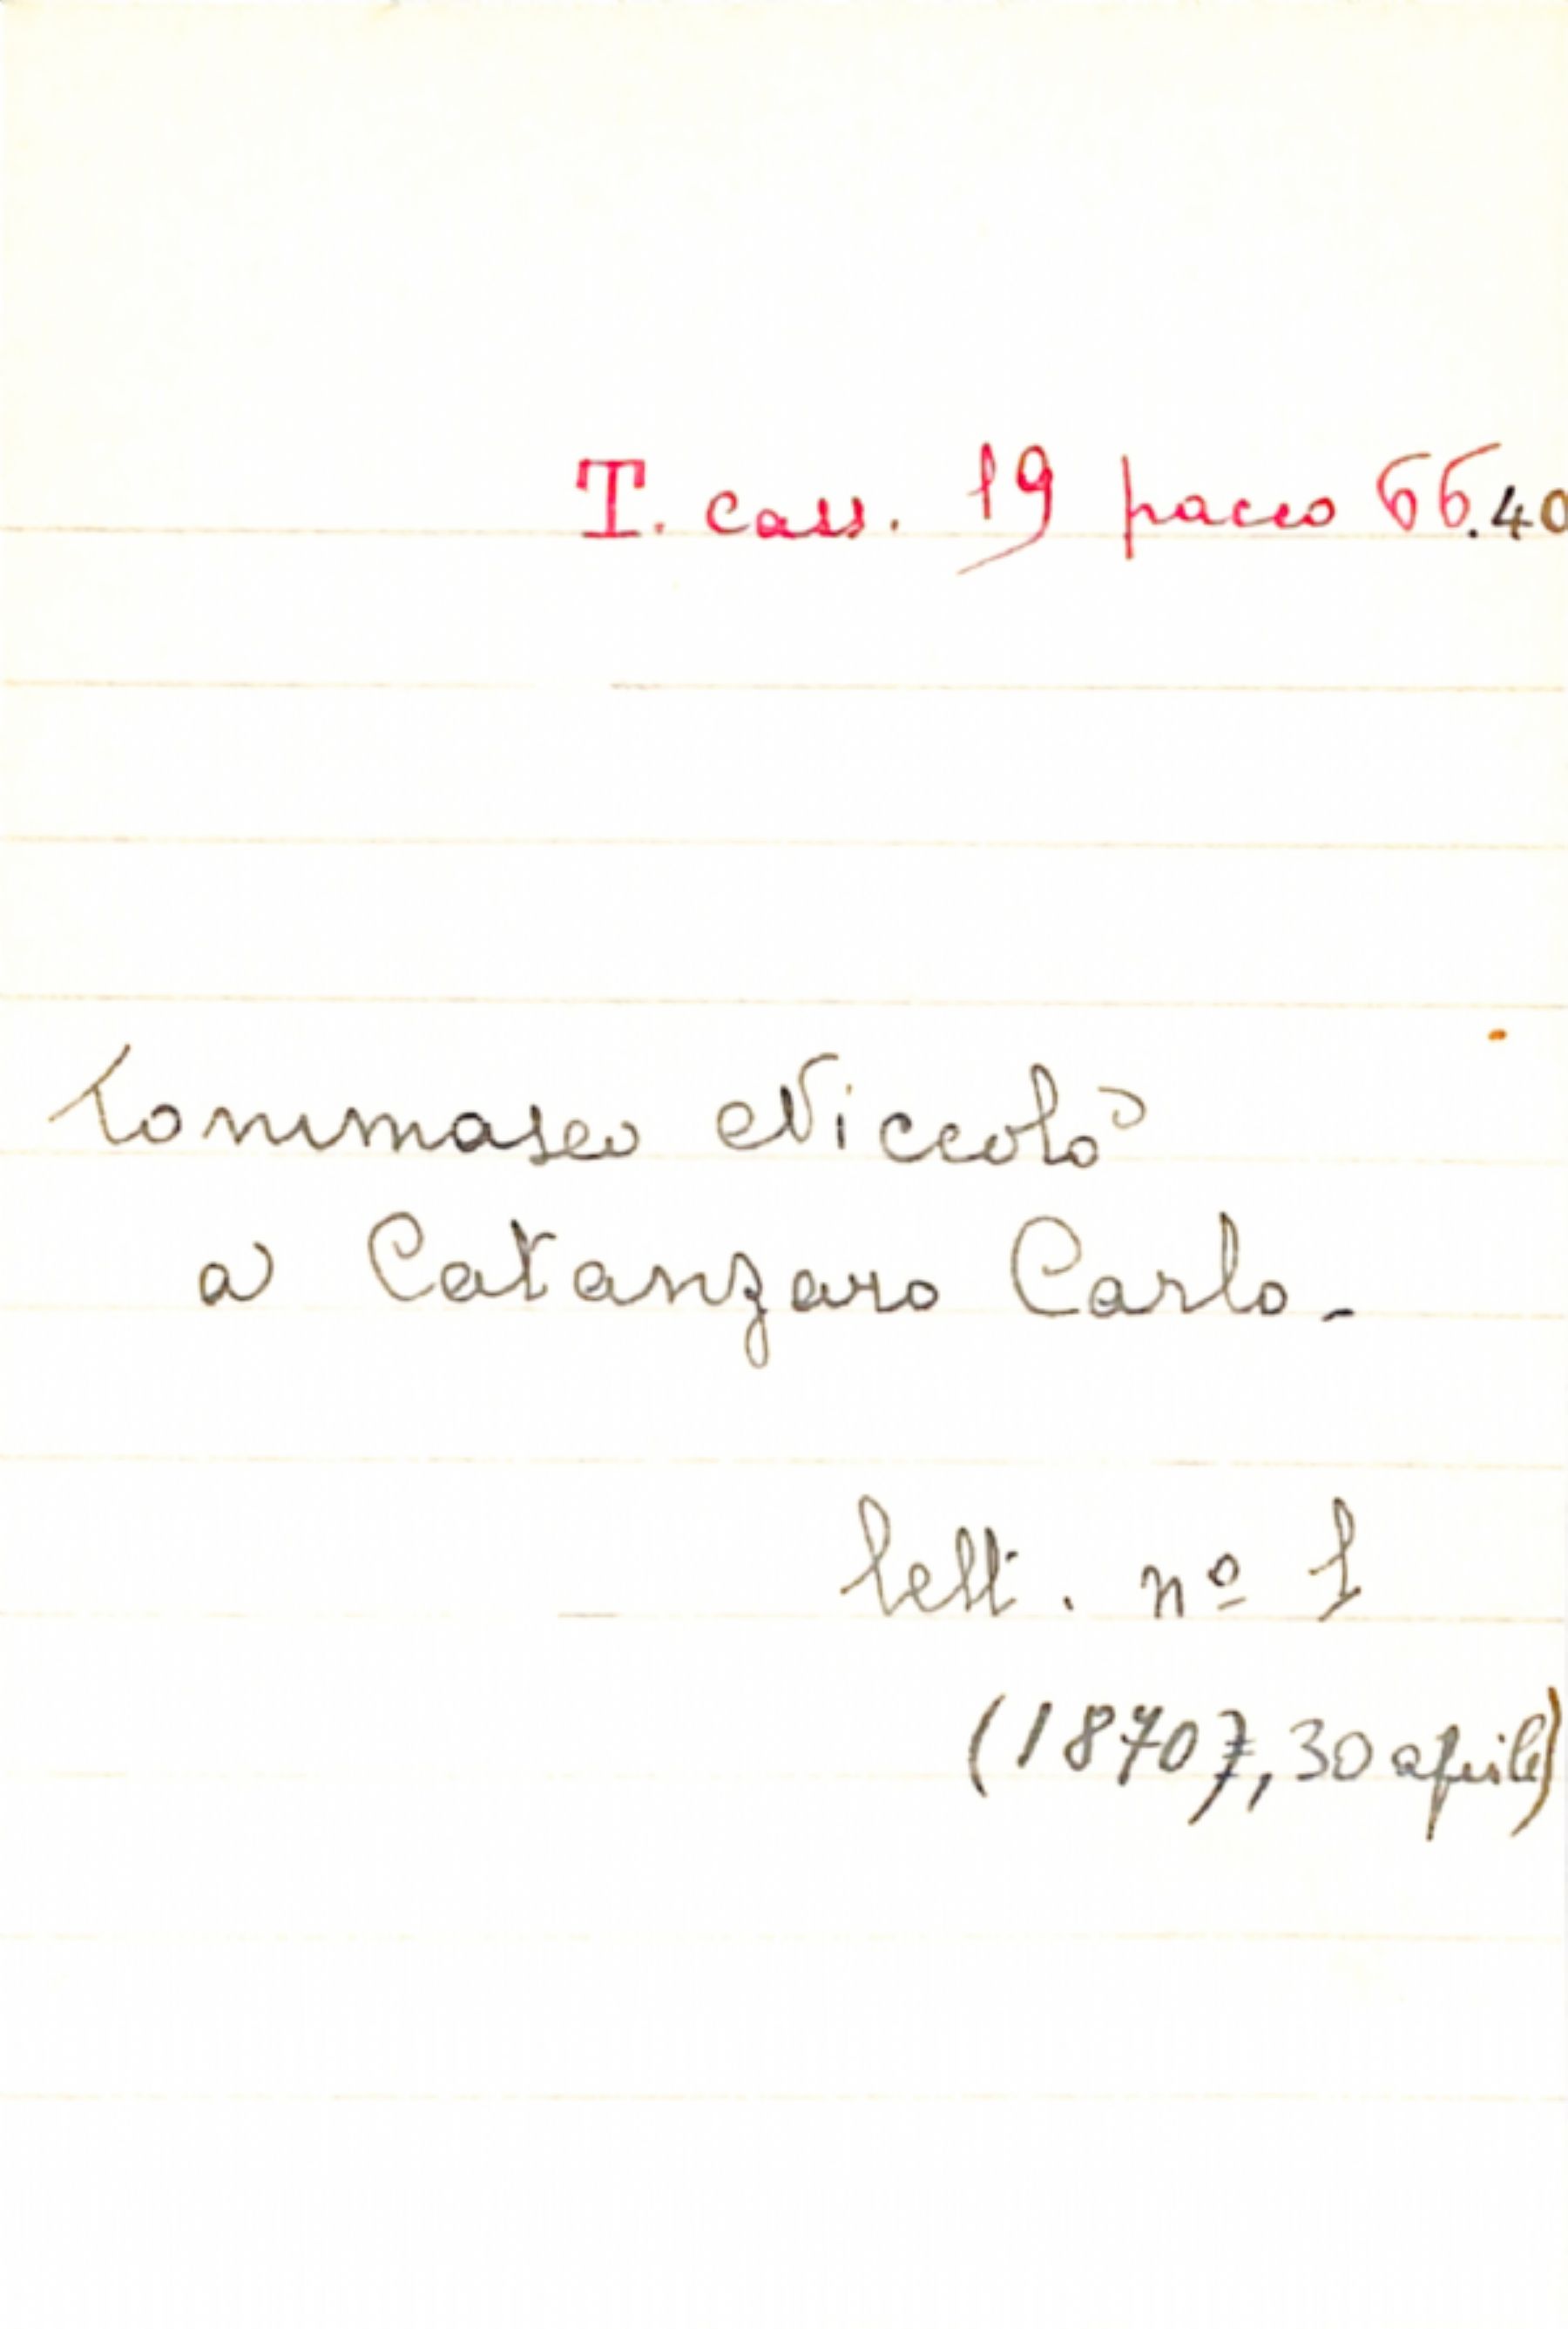 T. cass. 19 pacco 66.40
Tommaseo Niccolò
a Catanzaro Carlo.
lett. nº 1
(1870, 30 aprile)